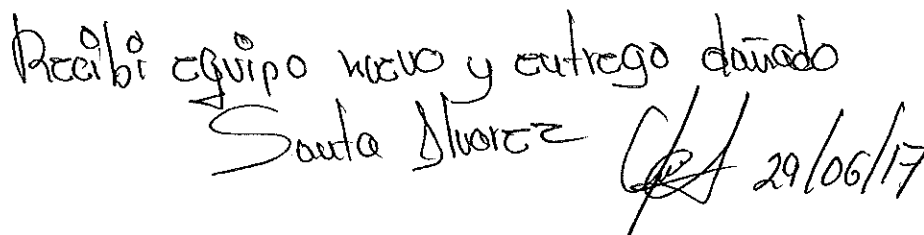 Recibi equipo nuevo y entrego dañado
Santa Alvarez 29/06/17